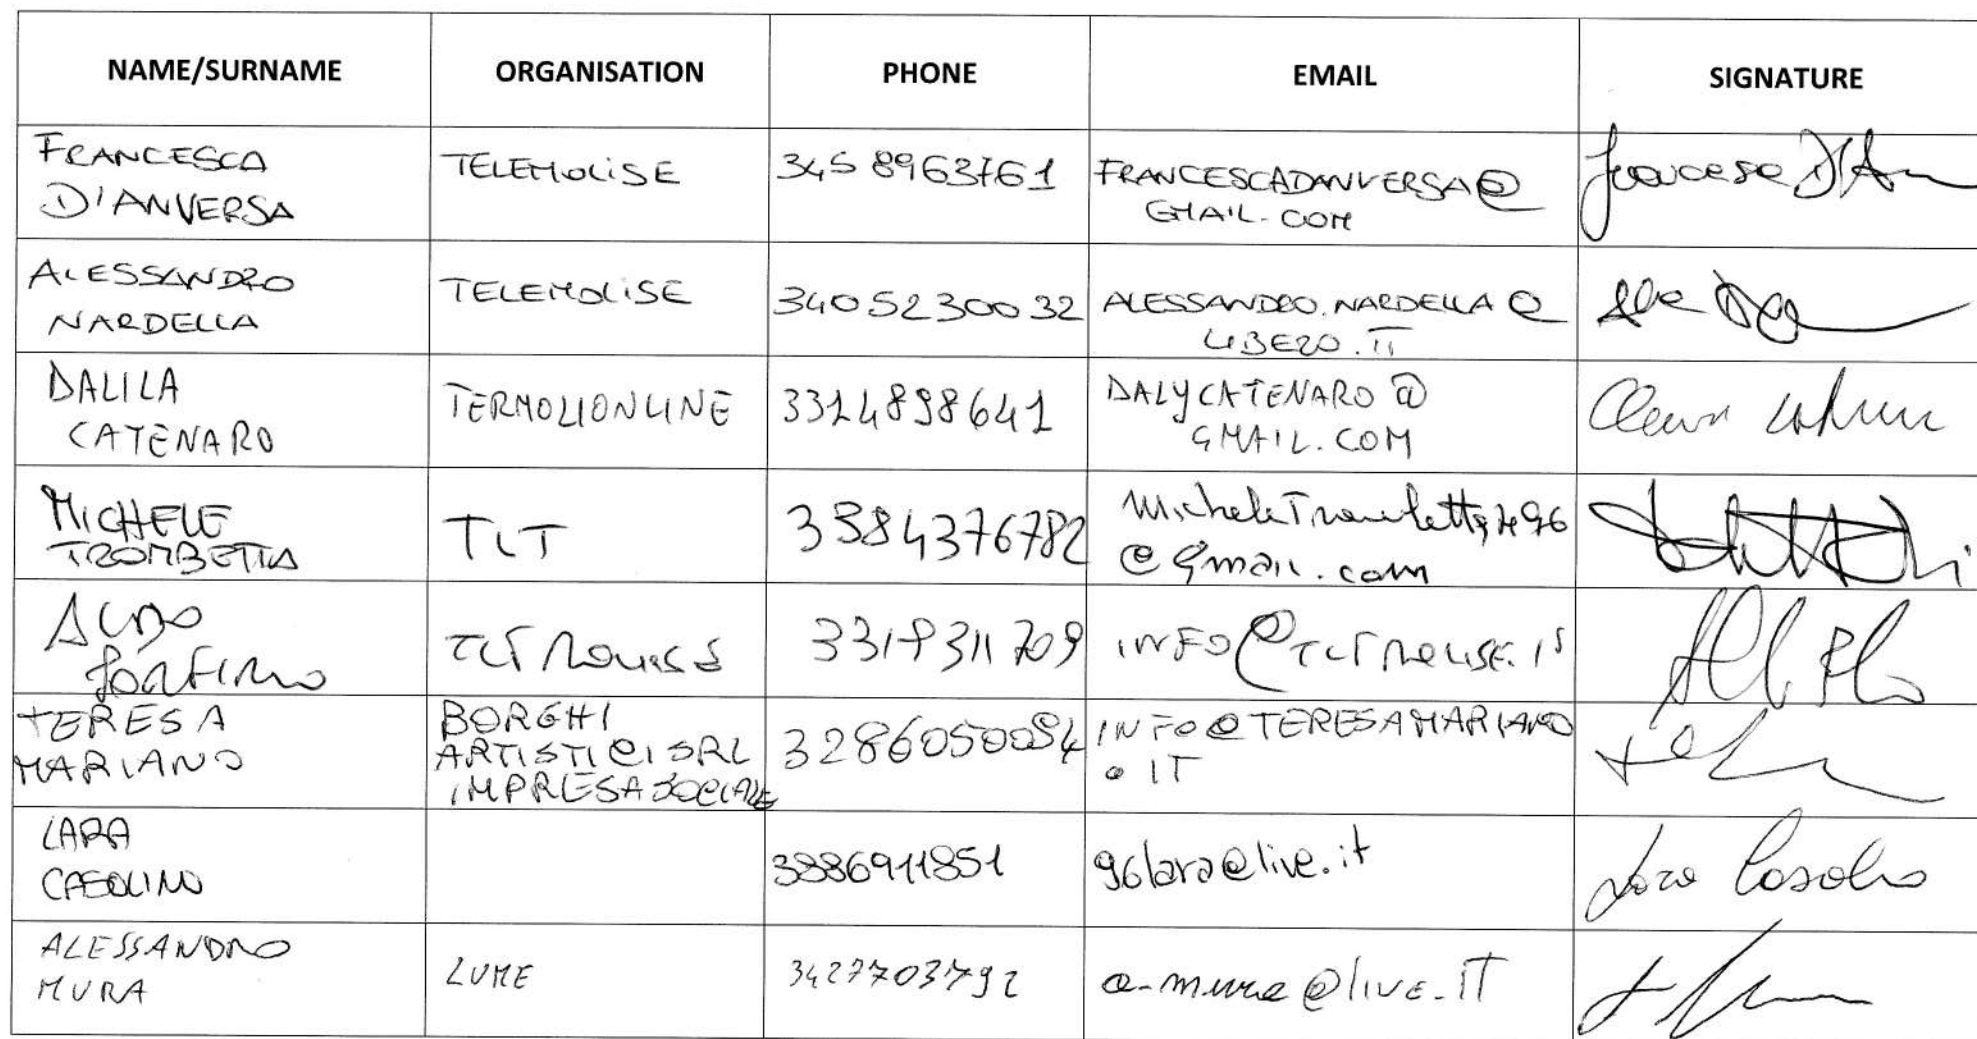 NAME/SURNAME ORGANISATION PHONE EMAIL SIGNATURE
FRANCESCA
D'ANVERSA
TELEMOLISE
345 8963761
FRANCESCADANVERSA@
GMAIL.COM
Francesca D'An
ALESSANDRO
NARDELLA
TELEMOLISE
3405230032
ALESSANDRO.NARDELLA@
LIBERO.IT
DALILA
CATENARO
TERMOLIONLINE
3314898641
DALYCATENARO@
GMAIL.COM
MICHELE
TROMBETTA
TLT
3384376782
@gmail.com
ALDO
TLT MOLISE
INFO@TLTMOLISE.IT
TERESA
MARIANO
BORGHI
ARTISTICI SRL
IMPRESA SOCIALE
3286050084
INFO@TERESAMARIANO
.IT
LARA
CASOLINO
96lara@live.it
Lara Casolino
ALESSANDRO
MURA
LUME
3427703792
a-mura@live.IT